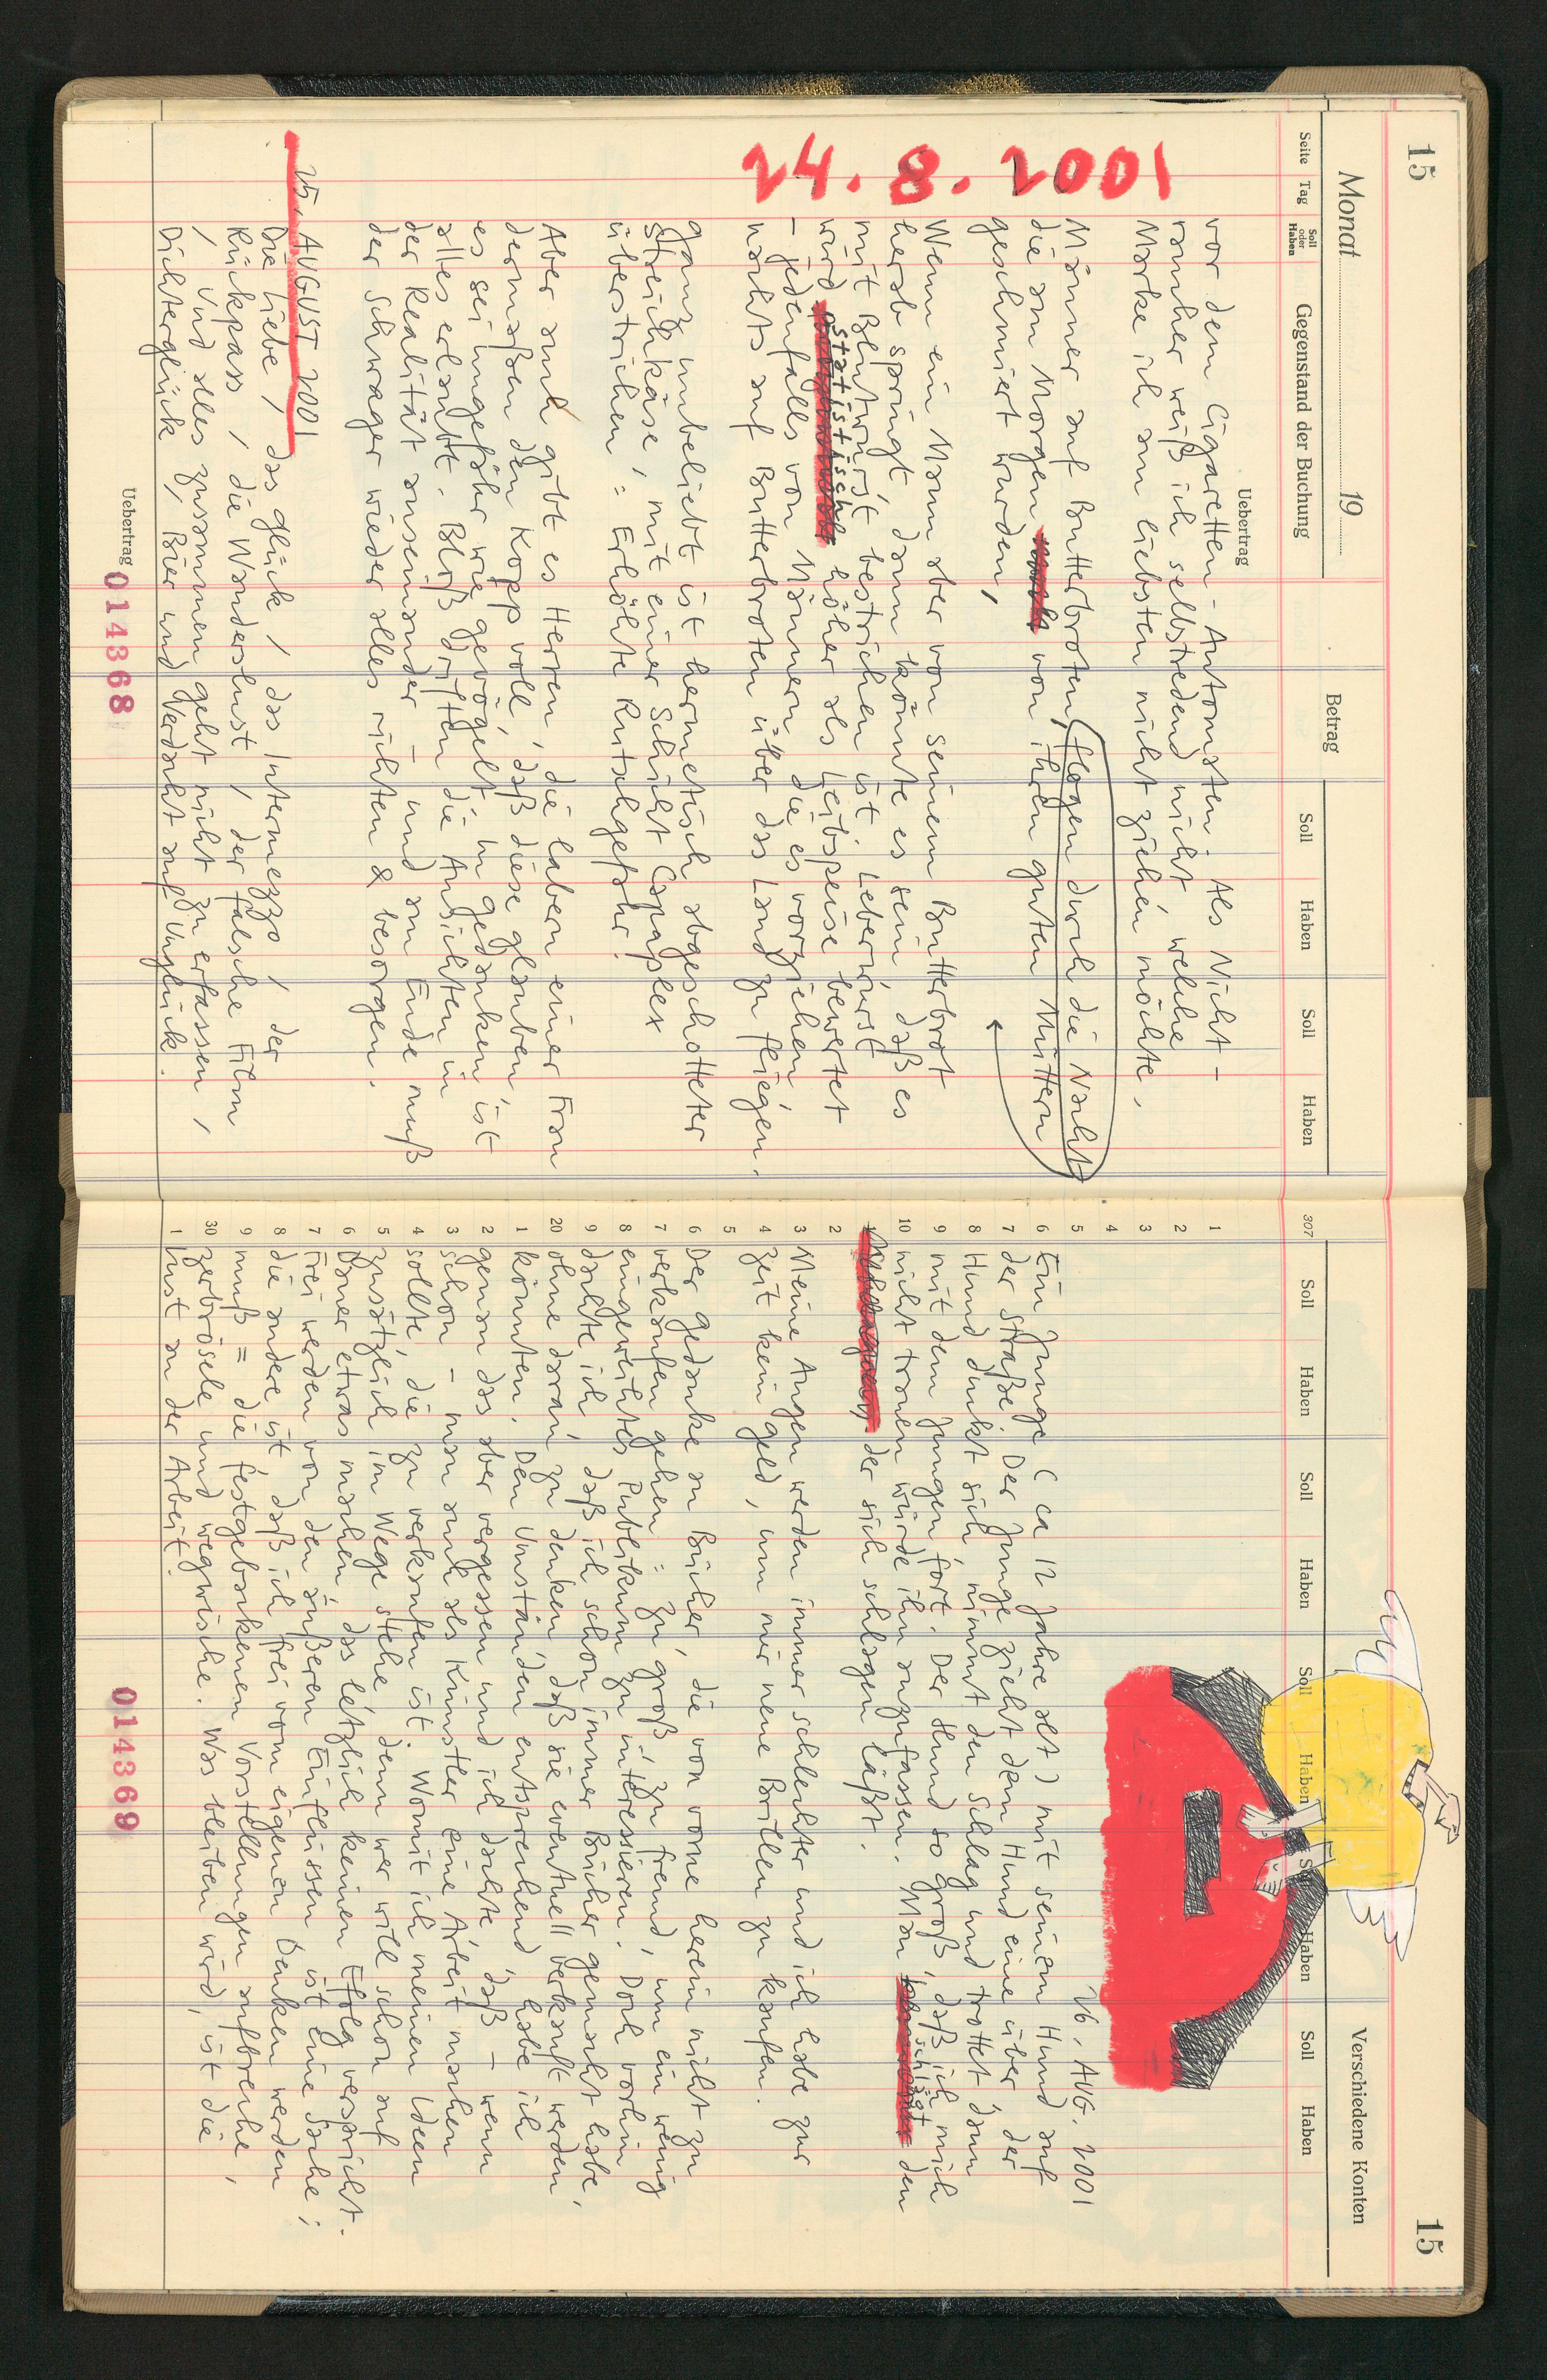 15
Monat 19
Seite Tag Soll oder Haben Gegenstand der Buchung Betrag Soll Haben Soll Haben
Uebertrag
24.8.2001
vor dem Cigaretten-Automaten. Als Nicht-
raucher weiß ich selbstredend nicht, welche
Marke ich am liebsten nicht ziehen möchte.
Männer auf Butterbroten, flogen durch die Nacht
die am Morgen von ihren guten Müttern
geschmiert wurden,
Wenn ein Mann aber von seinem Butterbrot
herab springt, dann könnte es sein, daß es
mit Blutwurst bestrichen ist. Leberwurst
wird statistisch höher als Leibspeise bewertet
- jedenfalls von Männern, die es vorziehen,
nachts auf Butterbroten über das Land zu fliegen.
ganz unbeliebt ist hermetisch abgeschotteter
Streichkäse, mit einer Schicht Caparplex
überstrichen = Erhöhte Rutschgefahr.
Aber auch gibt es Herren, die labern einer Frau
dermaßen den Kopp voll, daß diese glauben,
es sei ungefähr wie gevögelt. In gedanken, ist
alles erlaubt. Bloß driften die Ansichten in
der Realität auseinander - und am Ende muß
der Schwager wieder alles richten & besorgen.
25. AUGUST 2001
Die Liebe / das glück / das Intermezzo / der
Rückpass / die Wanderslust / der falsche Film
/ und alles zusammen geht nicht zu erfassen /
Dichterglück / Bier und Verdacht auf Unglück.
Uebertrag
014368
15
Verschiedene Konten
307 Soll Haben Soll Haben Soll Haben Soll Haben Soll Haben
1
2
3
4
5 26. AUG. 2001
6 Ein Junge (ca 12 Jahre alt) mit seinem Hund auf
7 der Straße. Der Junge zieht dem Hund eine über, der
8 Hund duckt sich, nimmt den Schlag und trottet dann
9 mit dem Jungen fort. Der Hund so groß, daß ich mich
10 nicht trauen würde ihn anzufassen. Man schlägt den
1 der sich schlagen läßt.
2
3 Meine Augen werden immer schlechter und ich habe zur
4 Zeit kein geld, um mir neue Brillen zu kaufen.
5
6 Der gedanke an Bücher, die von vorne herein nicht zu
7 verkaufen gehen = zu groß, zu fremd, um ein wenig
8 eingeweihtes Publikum zu interessieren. Doch vorhin
9 dachte ich, daß ich schon immer Bücher gemacht habe,
20 ohne daran zu denken, daß sie eventuell verkauft werden
1 könnten. Den Umständen entsprechend habe ich
2 genau das aber vergessen und ich dachte, daß - wenn
3 schon - man auch als Künstler eine Arbeit machen
4 sollte, die zu verkaufen ist. Womit ich meinen Ideen
5 zusätzlich im Wege stehe, denn wer will schon auf
6 Dauer etwas machen, das letzlich keinen Efolg verspricht.
7 Frei werden von den äußeren Einflüssen ist eine Sache;
8 die andere ist, daß ich frei vom eigenen Denken werden
9 muß = die festgebackenen Vorstellungen aufbreche,
30 zerbrösele und wegwische. Was bleiben wird, ist die
1 Lust an der Arbeit.
014369